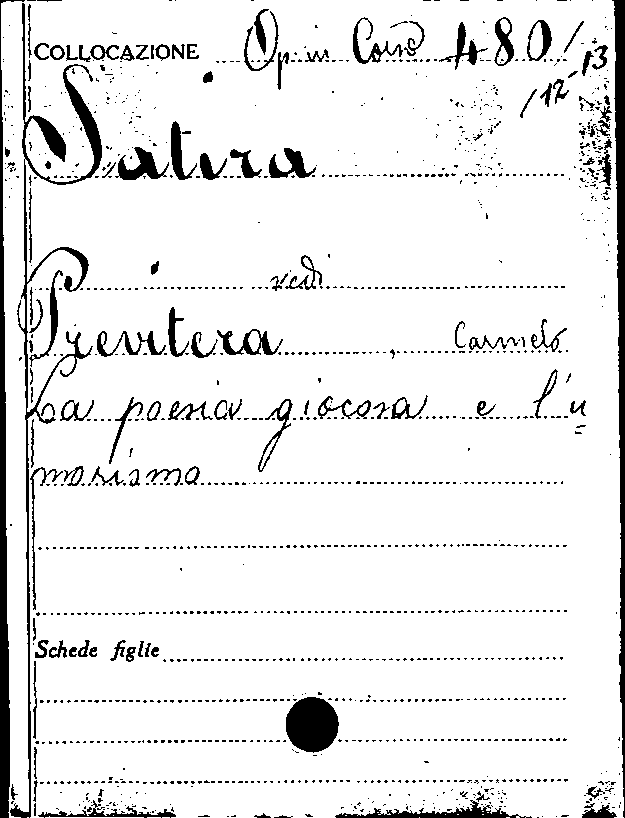 COLLOCAZIONE Op. in Corso 480/
/12-13
Satira
vedi
Previtera, Carmelo
La poesia giocosa e l'u
morismo
Schede figlie